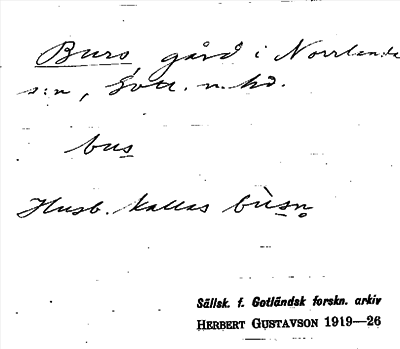 Burs, gård i Norrlanda
s:n, Gotl. n. hd.
bus
Husb. kallas bùsn̥
Sällsk. f. Gotländsk forskn. arkiv
HERBERT GUSTAVSON 1919—26